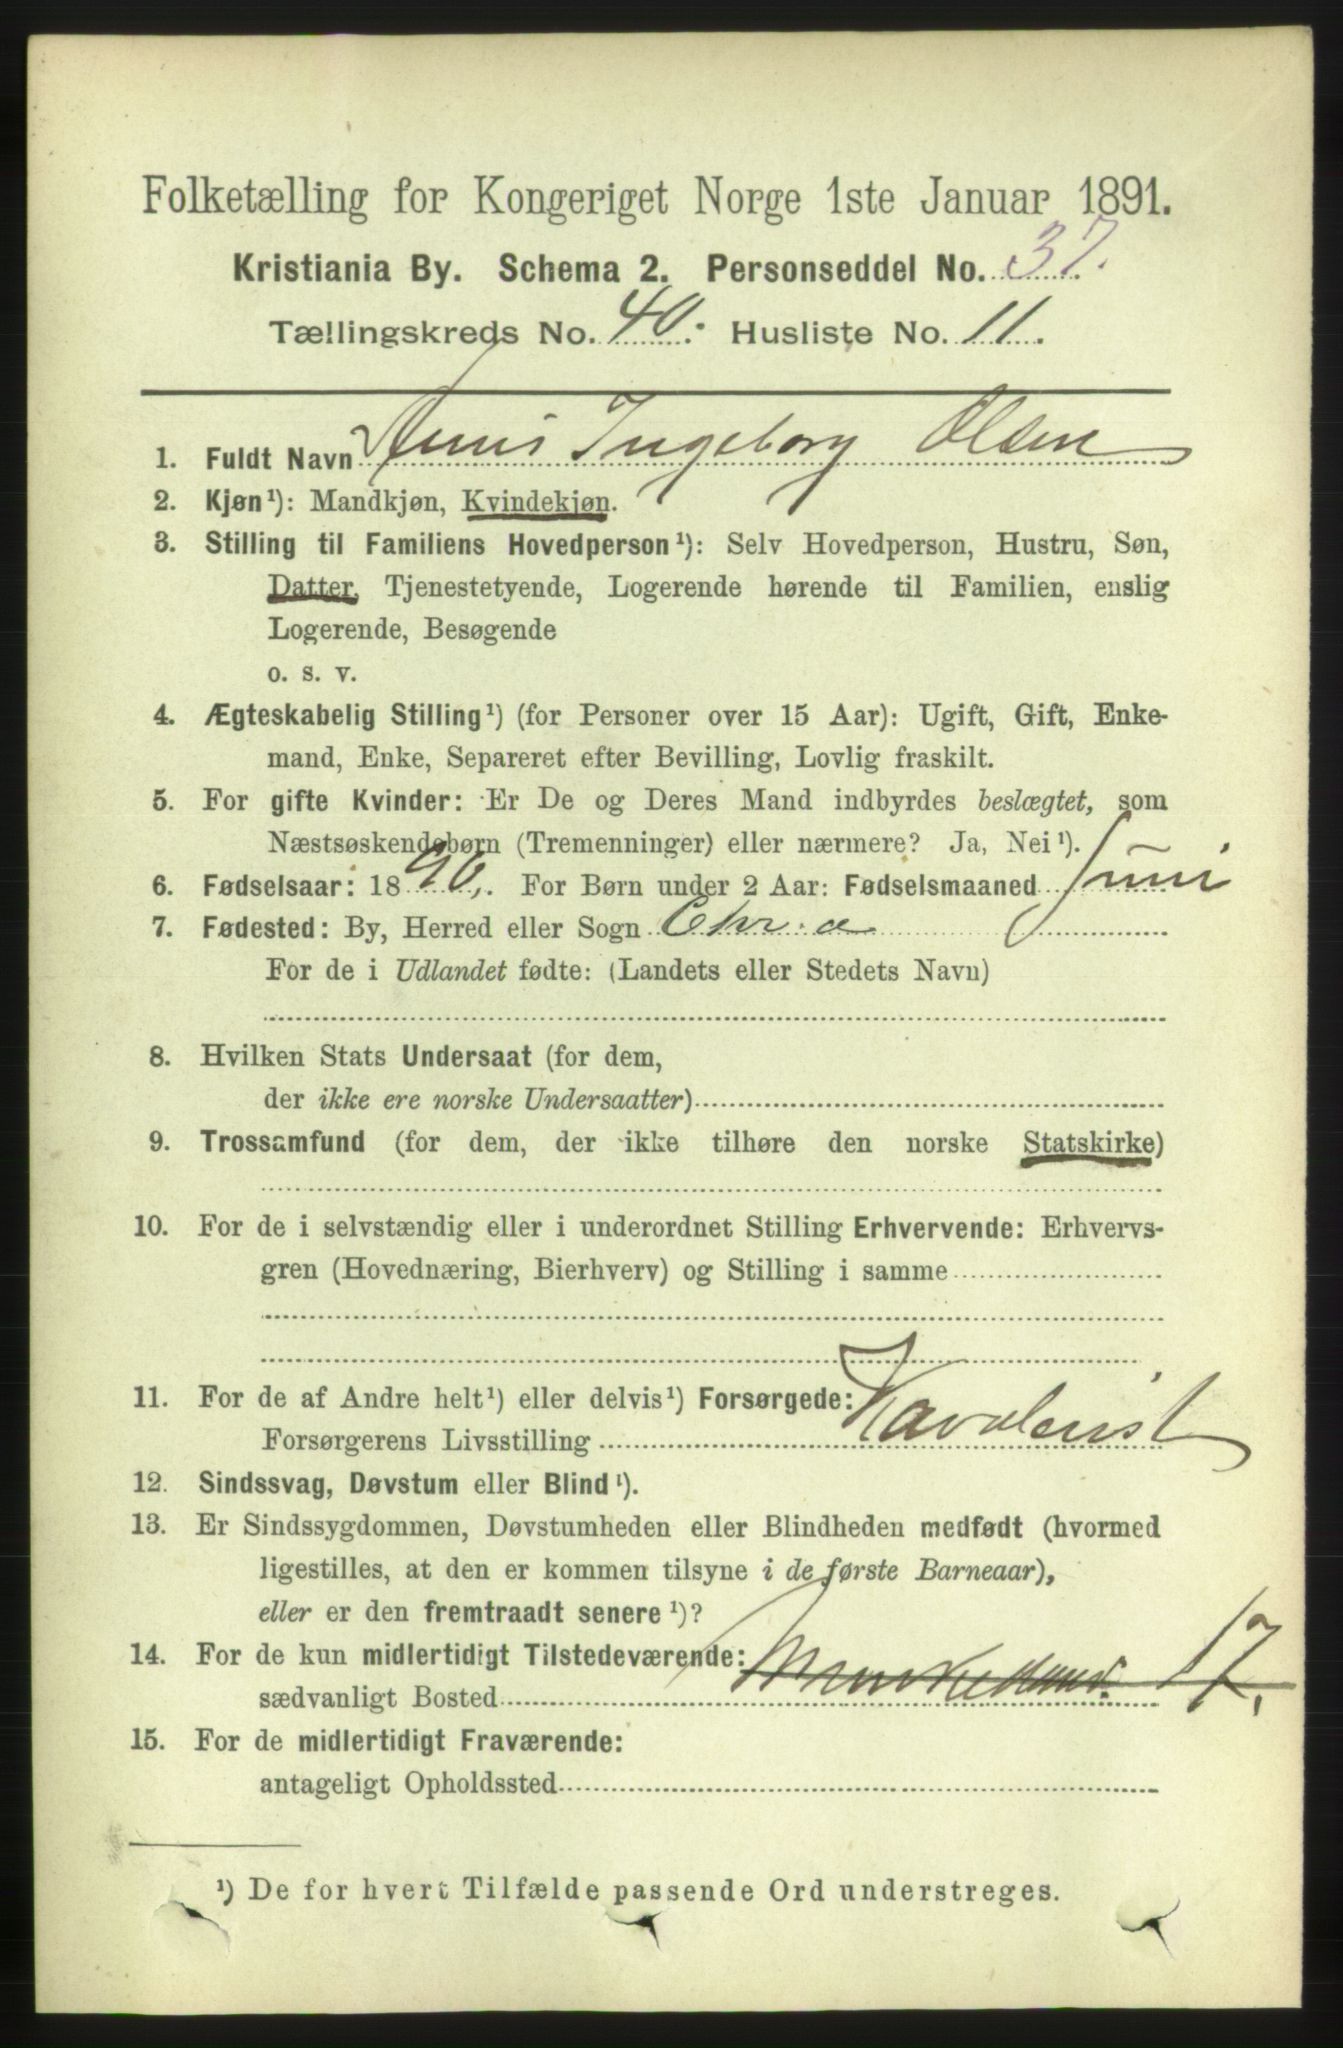 Folketælling for Kongeriget Norge 1ste Januar 1891.
Kristiania By. Schema 2. Personseddel No. 37.
Tællingskreds No. 40. Husliste No. 11.
1. Fuldt Navn Ingeborg Olsen
2. Kjøn¹): Mandkjøn, Kvindekjøn.
3. Stilling til Familiens Hovedperson¹): Selv Hovedperson, Hustru, Søn,
Datter, Tjenestetyende, Logerende hørende til Familien, enslig
Logerende, Besøgende
o. s. v.
4. Ægteskabelig Stilling¹) (for Personer over 15 Aar): Ugift, Gift, Enke-
mand, Enke, Separeret efter Bevilling, Lovlig fraskilt.
5. For gifte Kvinder: Er De og Deres Mand indbyrdes beslægtet, som
Næstsøskendebørn (Tremenninger) eller nærmere? Ja, Nei¹).
6. Fødselsaar: 1890,. For Børn under 2 Aar: Fødselsmaaned Juni
7. Fødested: By, Herred eller Sogn Chr.a
For de i Udlandet fødte: (Landets eller Stedets Navn)
8. Hvilken Stats Undersaat (for dem,
der ikke ere norske Undersaatter)
9. Trossamfund (for dem, der ikke tilhøre den norske Statskirke)
10. For de i selvstændig eller i underordnet Stilling Erhvervende: Erhvervs-
gren (Hovednæring, Bierhverv) og Stilling i samme
11. For de af Andre helt¹) eller delvis¹) Forsørgede:
Forsørgerens Livsstilling Kavalerist
12. Sindssvag, Døvstum eller Blind¹).
13. Er Sindssygdommen, Døvstumheden eller Blindheden medfødt (hvormed
ligestilles, at den er kommen tilsyne i de første Barneaar),
eller er den fremtraadt senere¹)?
14. For de kun midlertidigt Tilstedeværende: 17.
sædvanligt Bosted
15. For de midlertidigt Fraværende:
antageligt Opholdssted
¹) De for hvert Tilfælde passende Ord understreges.